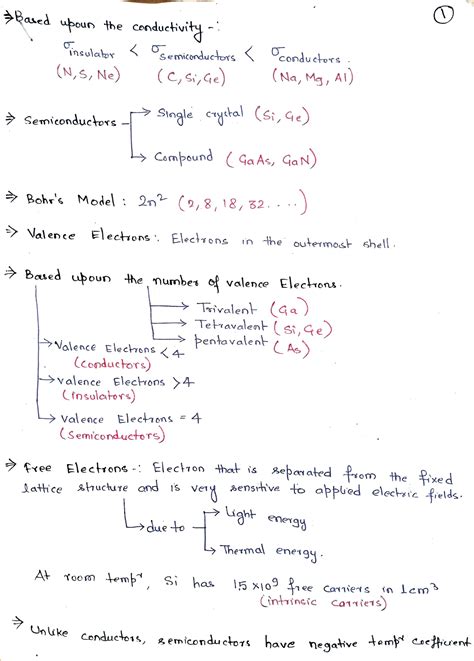 ①
⇒ Based upoun the conductivity -:
σinsulator < σsemiconductors < σconductors.
(N, S, Ne) (C, Si, Ge) (Na, Mg, Al)
⇒ Semiconductors → Single crystal (Si, Ge)
→ Compound (GaAs, GaN)
⇒ Bohr's Model : 2n² (2, 8, 18, 32. . . .)
⇒ Valence Electrons : Electrons in the outermost shell.
⇒ Based upoun the number of valence Electrons.
→ Trivalent (Ga)
→ Tetravalent (Si, Ge)
→ pentavalent (As)
→ Valence Electrons < 4
(conductors)
→ valence Electrons > 4
(Insulators)
→ valence Electrons = 4
(Semiconductors)
⇒ free Electrons -: Electron that is separated from the fixed
lattice structure and is very sensitive to applied electric fields.
→ due to → Light energy
→ Thermal energy.
At room tempʳ, Si has 1.5 x10⁹ free carriers in 1cm³
(intrinsic carriers)
⇒ Unlike conductors, semiconductors have negative tempʳ coefficient